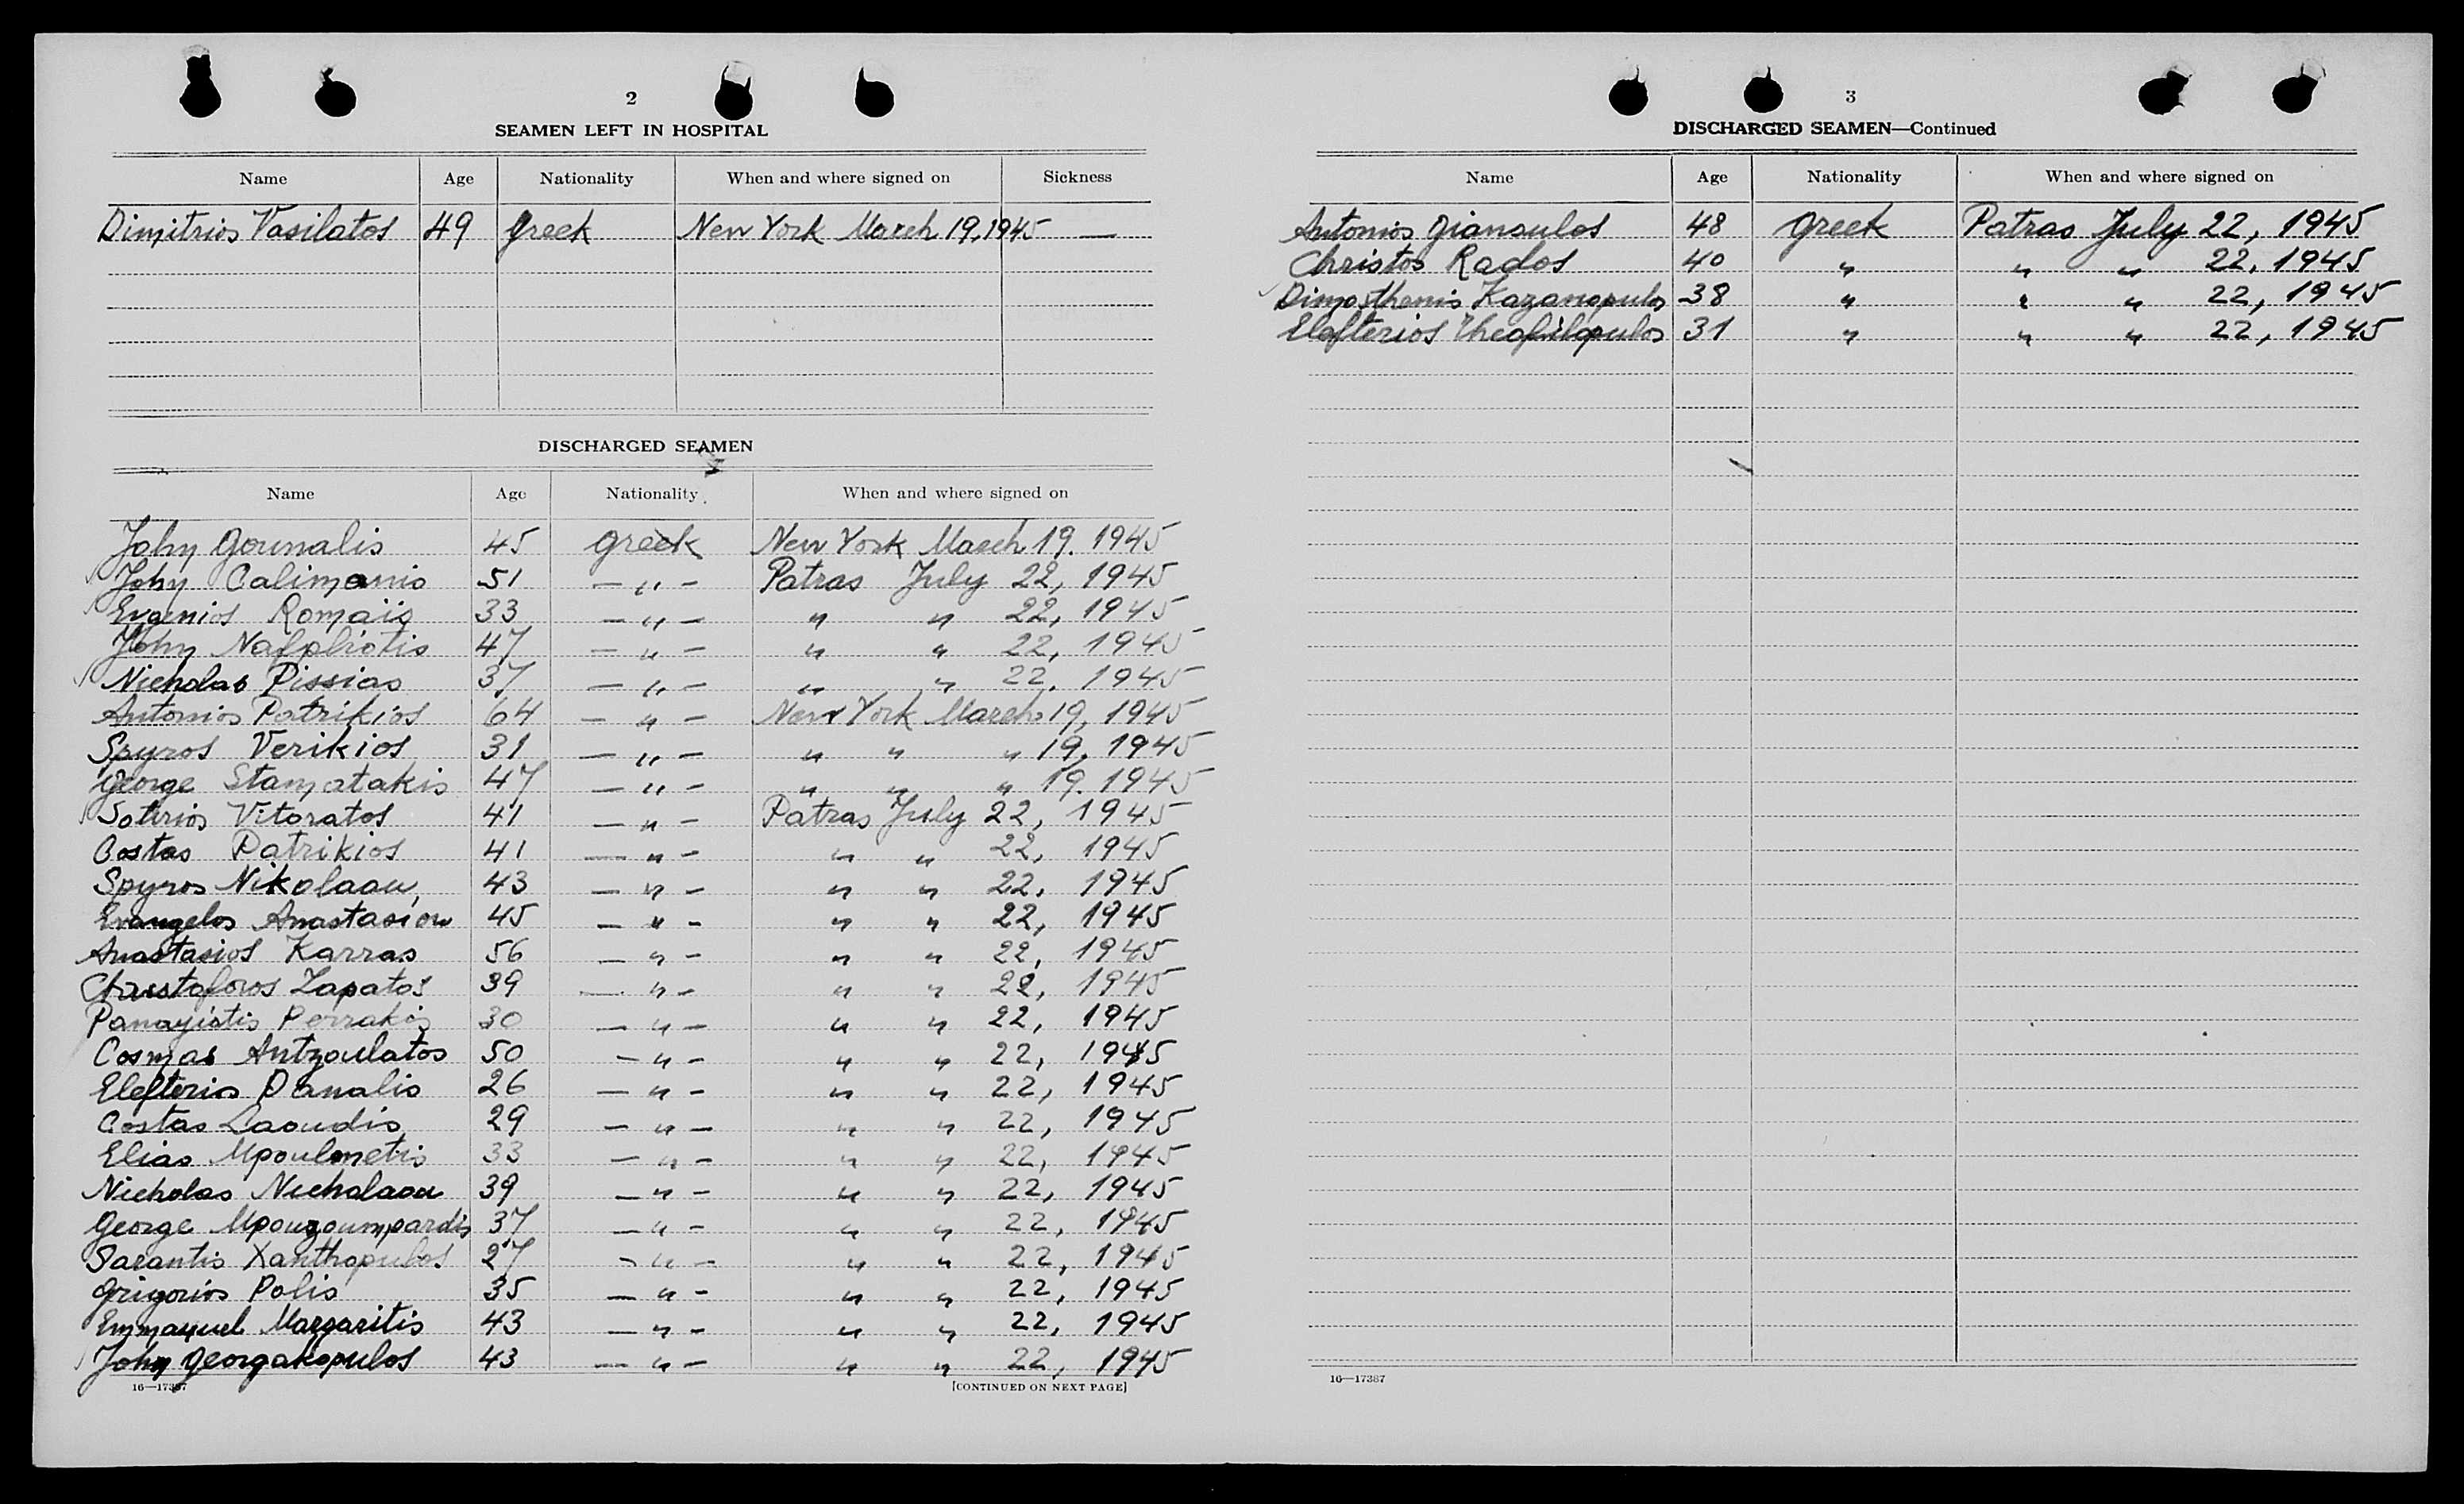 2
SEAMEN LEFT IN HOSPITAL
Name Age Nationality When and where signed on Sickness
Dimitrios Vasilatos 49 Greek New York March 19, 1945 —
DISCHARGED SEAMEN
Name Age Nationality When and where signed on
John Gounalis 45 Greek New York March 19. 1945
John Calimanis 51 — " — Patras July 22, 1945
Evgenios Romaiis 33 — " — " " 22, 1945
John Nafpliotis 47 — " — " " 22, 1945
Nicholas Pissias 37 — " — " " 22. 1945
Antonios Patrikios 64 — " — New York March 19, 1945
Spyros Verikios 31 — " — " " " 19, 1945
George Stamatakis 47 — " — " " " 19. 1945
Sotirios Vitoratos 41 — " — Patras July 22, 1945
Costas Patrikios 41 — " — " " 22, 1945
Spyros Nikolaou 43 — " — " " 22, 1945
Evangelos Anastasiou 45 — " — " " 22, 1945
Anastasios Karras 56 — " — " " 22, 1945
Christoforos Zapatos 39 — " — " " 22, 1945
Panayiotis Perrakis 30 — " — " " 22, 1945
Cosmas Antzoulatos 50 — " — " " 22, 1945
Elefterios Danalis 26 — " — " " 22, 1945
Costas Laoudis 29 — " — " " 22, 1945
Elias Mpoulmetis 33 — " — " " 22, 1945
Nicholas Nicholaou 39 — " — " " 22, 1945
George Mpouzoumpardis 37 — " — " " 22, 1945
Sarantis Xanthopulos 27 — " — " " 22, 1945
Grigorios Polis 35 — " — " " 22, 1945
Emmanuel Margaritis 43 — " — " " 22, 1945
John Georgakopulos 43 — " — " " 22, 1945
16—17387 [CONTINUED ON NEXT PAGE]
3
DISCHARGED SEAMEN—Continued
Name Age Nationality When and where signed on
Antonios Gianoulos 48 Greek Patras July 22, 1945
Christos Rados 40 " " " 22, 1945
Dimosthenis Kazanopulos 38 " " " 22, 1945
Elefterios Theofilopulos 31 " " " 22, 1945
16—17387